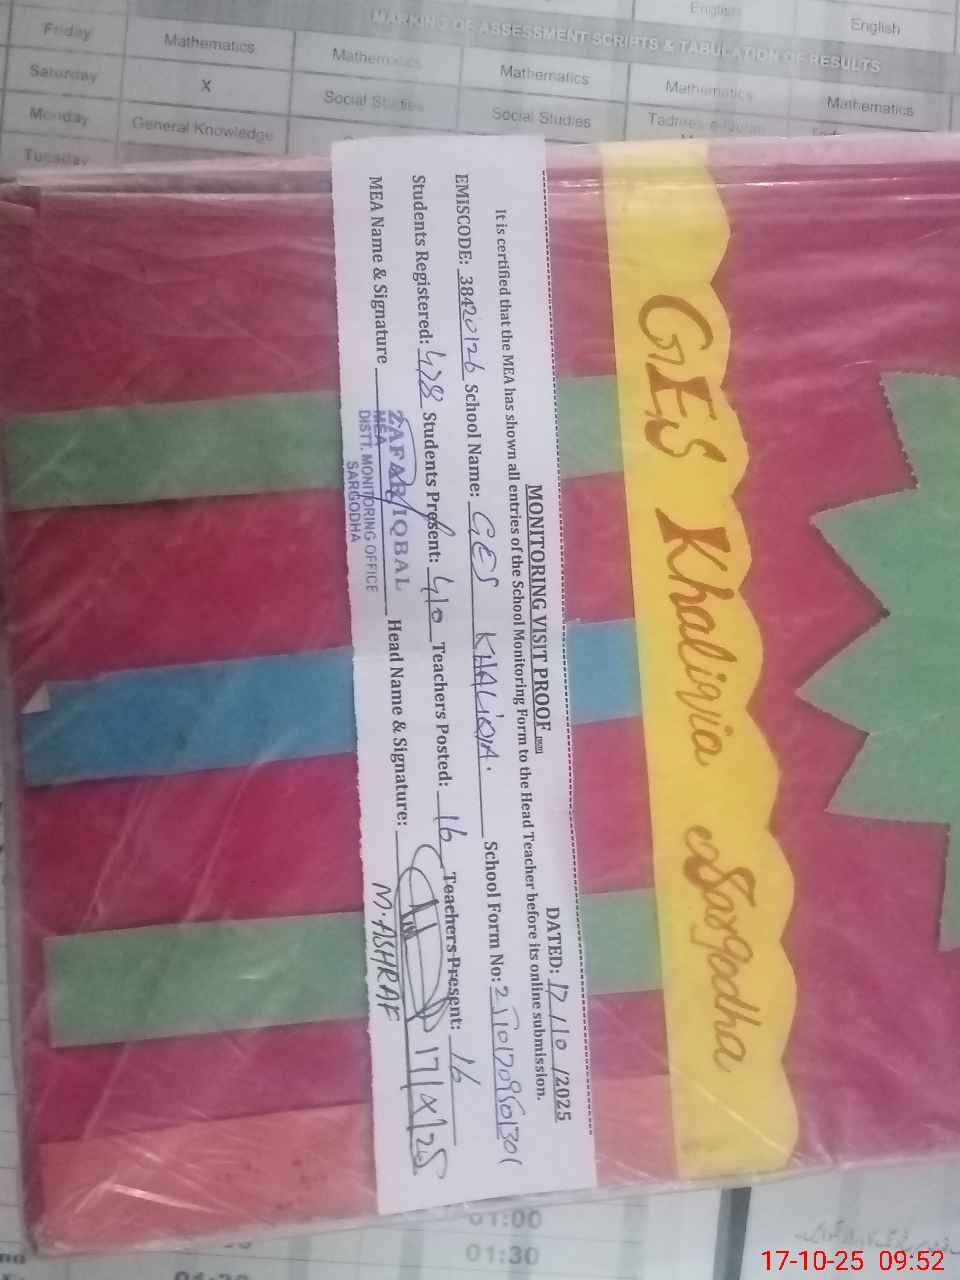 English
English
MARKING OF ASSESSMENT SCRIPTS & TABULATION OF RESULTS
Friday Mathematics Mathematics Mathematics Mathematics Mathematics
Saturday X Social Studies Social Studies
Monday General Knowledge
Tuesday
GES Khaliqia Sargodha
MONITORING VISIT PROOF
DATED: 17/10/2025
It is certified that the MEA has shown all entries of the School Monitoring Form to the Head Teacher before its online submission.
EMISCODE: 38420126 School Name: GES KHALIQIA. School Form No: 25101709501301
Students Registered: 478 Students Present: 410 Teachers Posted: 16 Teachers Present: 16
MEA Name & Signature Head Name & Signature:
ZAFAR IQBAL
MEA
DISTT. MONITORING OFFICE
SARGODHA
M. ASHRAF
17/X/25
01:00
01:30
17-10-25 09:52